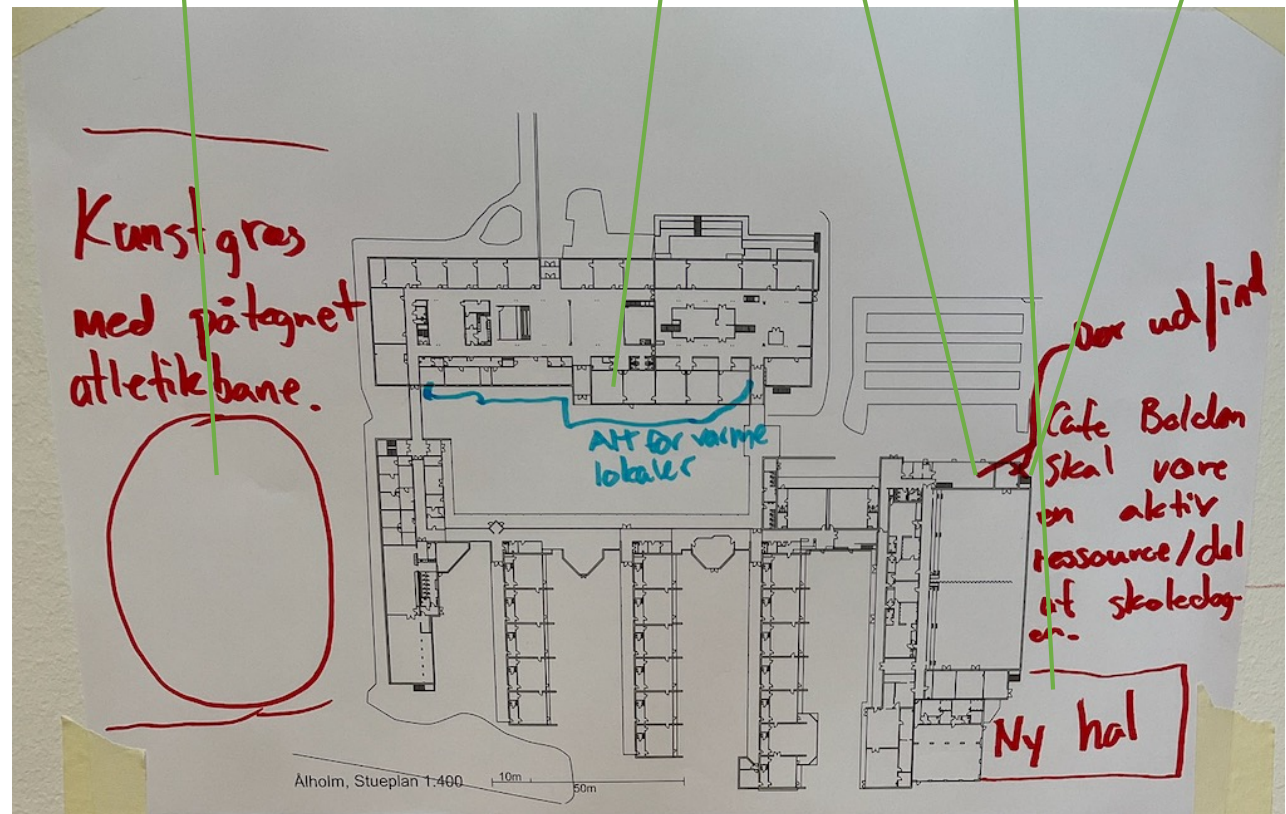 Kunstgræs
med påtegnet
atletikbane.
Alt for varme
lokaler
Dør ud/ind
Cafe Bolden
skal være
en aktiv
ressource/del
af skoledag-
en.
Ny hal
Ålholm, Stueplan 1:400
10m
50m